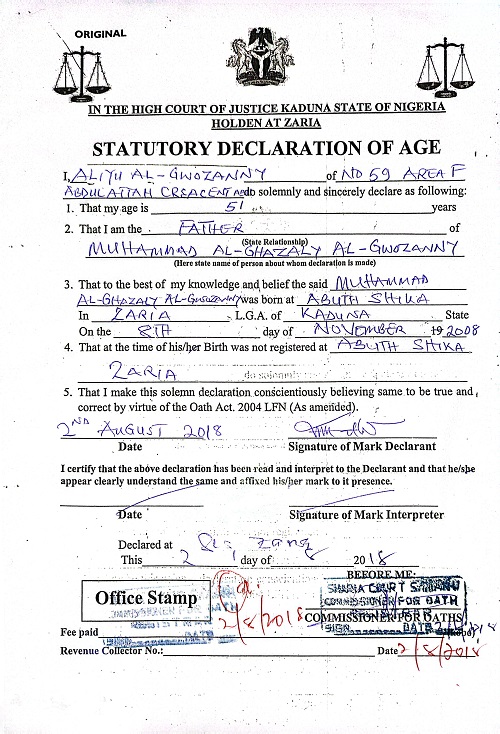 ORIGINAL
IN THE HIGH COURT OF JUSTICE KADUNA STATE OF NIGERIA
HOLDEN AT ZARIA
STATUTORY DECLARATION OF AGE
I, ALIYU AL-GWOZANNY of NO 59 AREA F
ABDULATTAH CRSACENT do solemnly and sincerely declare as following:
1. That my age is 51 years
2. That I am the FATHER of
(State Relationship)
MUHAMMAD AL-GHAZALY AL-GWOZANNY
(Here state name of person about whom declaration is made)
3. That to the best of my knowledge and belief the said MUHAMMAD
AL-GHAZALY AL-GWOZANNY was born at ABUTH SHIKA
In ZARIA L.G.A. of KADUNA State
On the 8TH day of NOVEMBER 19 2008
4. That at the time of his/her Birth was not registered at ABUTH SHIKA
ZARIA
5. That I make this solemn declaration conscientiously believing same to be true and
correct by virtue of the Oath Act. 2004 LFN (As amended).
2ND AUGUST 2018
Date Signature of Mark Declarant
I certify that the above declaration has been read and interpret to the Declarant and that he/she
appear clearly understand the same and affixed his/her mark to it presence.
Date Signature of Mark Interpreter
Declared at
This 2 day of 8 2018
BEFORE ME:
Office Stamp
SHARIA COURT
COMMISSIONER FOR OATH
COMMISSIONER FOR OATHS
SIGN DATE
2/8/2018
Fee paid (Kobo)
Revenue Collector No.: Date 2/8/2018